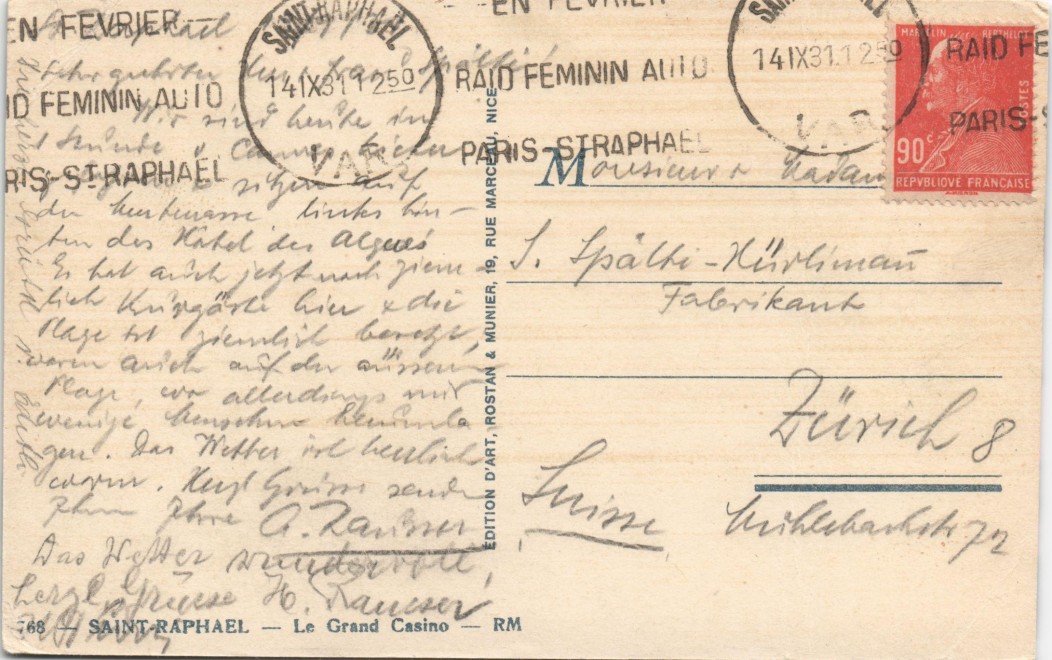 EN FEVRIER
RAID FEMININ AUTO
PARIS-ST RAPHAEL
SAINT-RAPHAEL
14 IX 31 12 50
VAR
EN FEVRIER
RAID FEMININ AUTO
PARIS-ST RAPHAEL
14 IX 31 12 50
VAR
RAID FE
PARIS-S
MARCELIN BERTHELOT
POSTES
90c
REPVBLIQVE FRANÇAISE
St Raphael
Sehr geehrter Herr Frau Spälti!
Wir sind heute in
1 Stunde v. Cannes hieher
sitzen auf
der links hin-
ten des Hotel des Algues
Es hat auch jetzt noch ziem-
lich Kurgäste hier & die
Plage ist ziemlich besetzt,
waren auch auf der äussern
Plage, wo allerdings nur
wenige Menschen herumla
gen. Das Wetter ist herrlich
warm. Herzl Grüsse senden
Ihnen Ihre A.
Das Wetter wundervoll,
herzl. Grüsse H.
Monsieur & Madame
S. Spälti-Hürlimann
Fabrikant
Zürich 8
Mühlebachstr 72
Suisse
EDITION D'ART, ROSTAN & MUNIER, 19, RUE MARCEAU, NICE
768 — SAINT-RAPHAEL — Le Grand Casino — RM